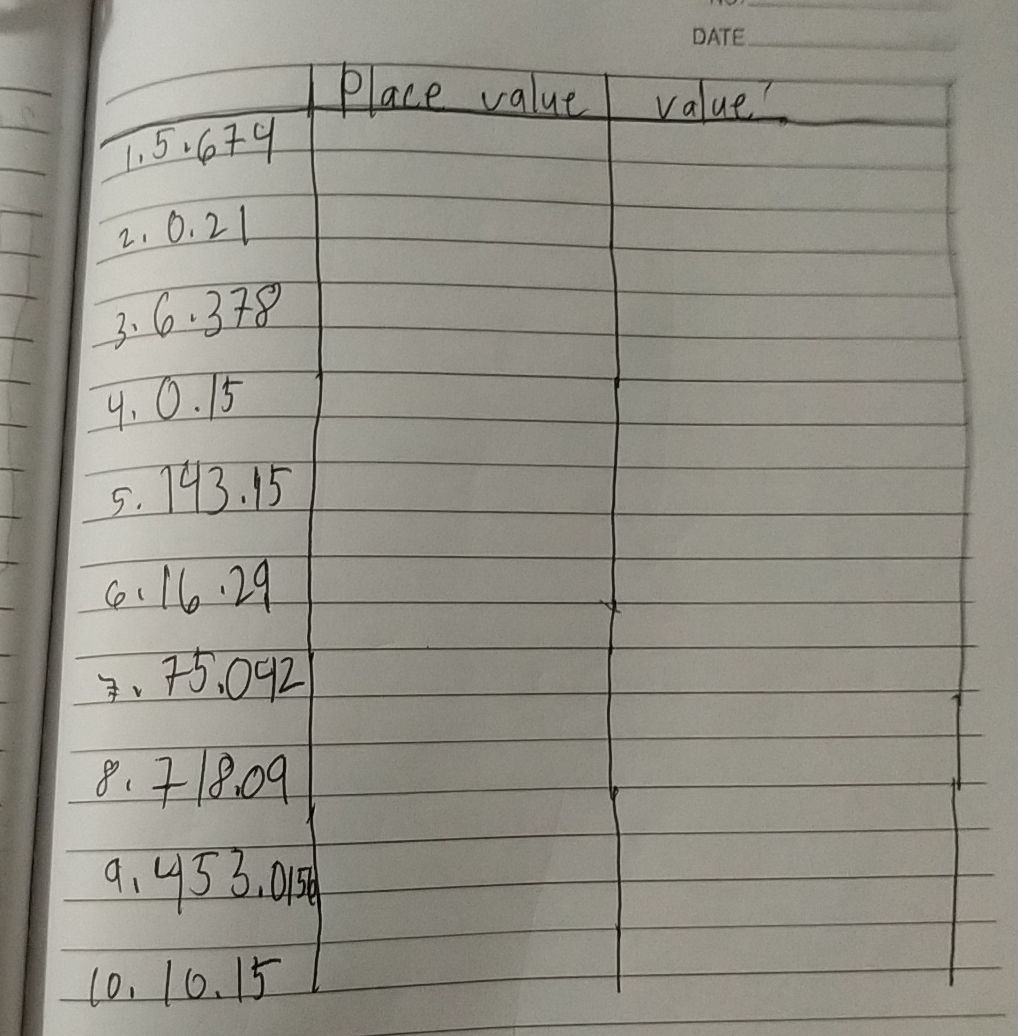 DATE
Place value value
1. 5.674
2. 0.21
3. 6.378
4. 0.15
5. 143.15
6. 16.29
7. 75.042
8. 718.09
9. 453.0156
10. 10.15